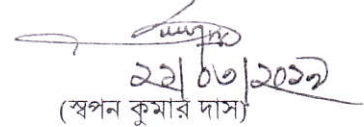 ২২/০৩/২০১৭
(স্বপন কুমার দাস)